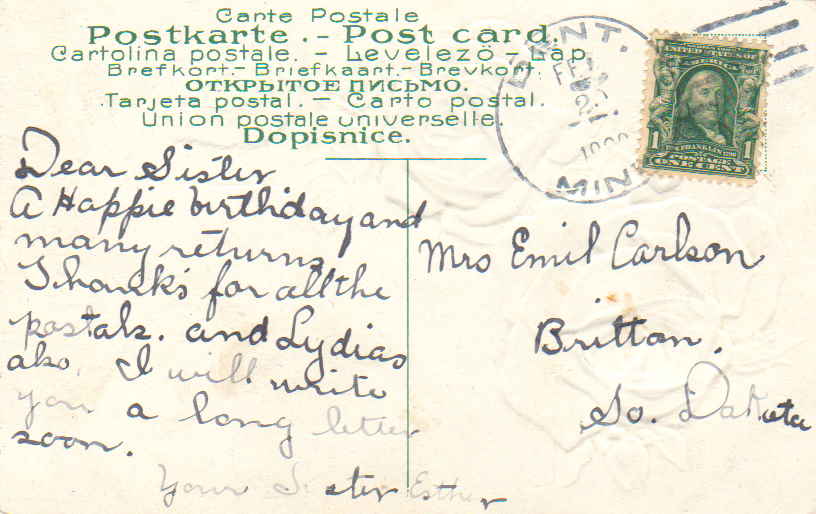 Carte Postale
Postkarte. - Post card.
Cartolina postale. - Levelezö - Lap.
Brefkort.- Briefkaart.- Brevkort.
ОТКРЫТОЕ ПИСЬМО.
Tarjeta postal. - Carto postal.
Union postale universelle.
Dopisnice.
Dear Sister
A Happie birthday and
many returns
Thanks for all the
postals. and Lydias
also. I will write
you a long letter
soon.
Your Sister Esther
Mrs Emil Carlson
Britton.
So. Dakota
MINN
UNITED STATES OF
AMERICA
1 1
FRANKLIN
POSTAGE
ONE CENT